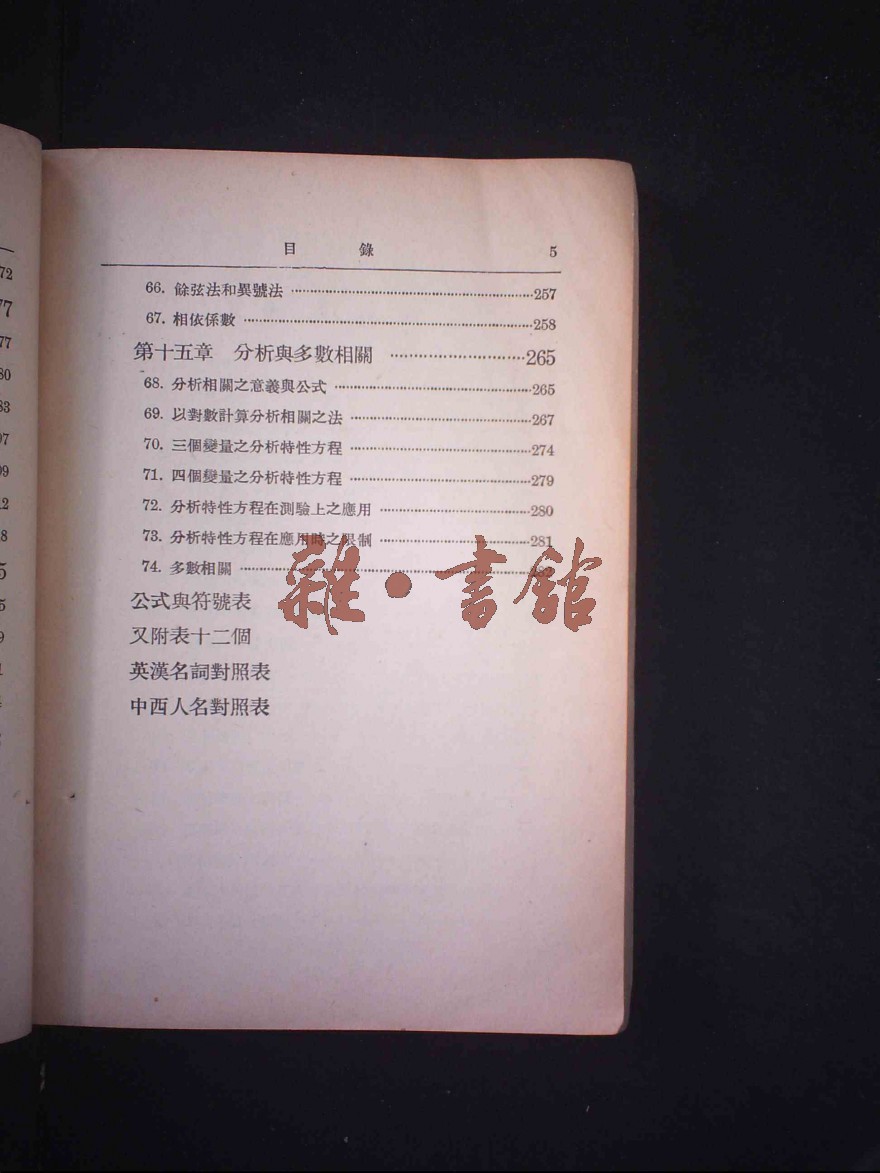 目 錄 5
66. 餘弦法和異號法 257
67. 相依係數 258
第十五章 分析與多數相關 265
68. 分析相關之意義與公式 265
69. 以對數計算分析相關之法 267
70. 三個變量之分析特性方程 274
71. 四個變量之分析特性方程 279
72. 分析特性方程在測驗上之應用 280
73. 分析特性方程在應用時之限制 281
74. 多數相關
雜·書館
公式與符號表
又附表十二個
英漢名詞對照表
中西人名對照表